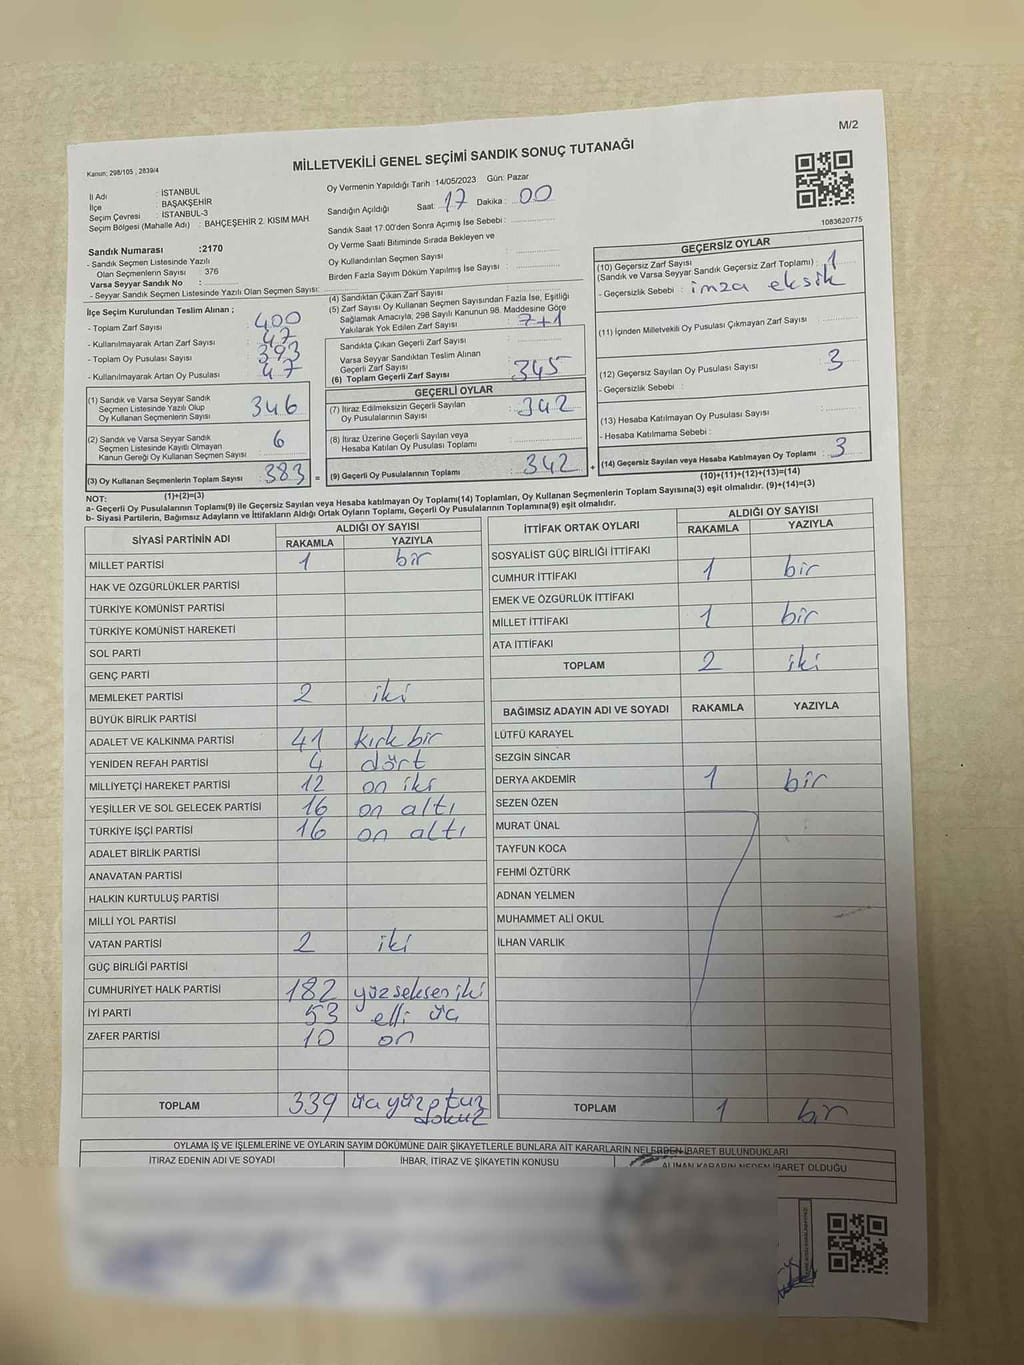 M/2
Kanun; 298/105 , 2839/4
MİLLETVEKİLİ GENEL SEÇİMİ SANDIK SONUÇ TUTANAĞI
İl Adı : İSTANBUL
İlçe : BAŞAKŞEHİR
Seçim Çevresi : İSTANBUL-3
Seçim Bölgesi (Mahalle Adı) : BAHÇEŞEHİR 2. KISIM MAH.
Sandık Numarası :2170
- Sandık Seçmen Listesinde Yazılı
Olan Seçmenlerin Sayısı : 376
Varsa Seyyar Sandık No :
- Seyyar Sandık Seçmen Listesinde Yazılı Olan Seçmen Sayısı:
Oy Vermenin Yapıldığı Tarih :14/05/2023 Gün: Pazar
Sandığın Açıldığı Saat: 17 Dakika : 00
Sandık Saat 17.00'den Sonra Açımış İse Sebebi :
Oy Verme Saati Bitiminde Sırada Bekleyen ve
Oy Kullandırılan Seçmen Sayısı :
Birden Fazla Sayım Döküm Yapılmış İse Sayısı :
1083620775
İlçe Seçim Kurulundan Teslim Alınan ;
- Toplam Zarf Sayısı : 400
- Kullanılmayarak Artan Zarf Sayısı : 47
- Toplam Oy Pusulası Sayısı : 393
- Kullanılmayarak Artan Oy Pusulası : 47
(1) Sandık ve Varsa Seyyar Sandık
Seçmen Listesinde Yazılı Olup
Oy Kullanan Seçmenlerin Sayısı : 346
(2) Sandık ve Varsa Seyyar Sandık
Seçmen Listesinde Kayıtlı Olmayan
Kanun Gereği Oy Kullanan Seçmen Sayısı : 6
(3) Oy Kullanan Seçmenlerin Toplam Sayısı : 383 =
(1)+(2)=(3)
(4) Sandıktan Çıkan Zarf Sayısı :
(5) Zarf Sayısı Oy Kullanan Seçmen Sayısından Fazla İse, Eşitliği
Sağlamak Amacıyla, 298 Sayılı Kanunun 98. Maddesine Göre
Yakılarak Yok Edilen Zarf Sayısı : 7+1
Sandıkta Çıkan Geçerli Zarf Sayısı :
Varsa Seyyar Sandıktan Teslim Alınan
Geçerli Zarf Sayısı :
(6) Toplam Geçerli Zarf Sayısı : 345
GEÇERLİ OYLAR
(7) İtiraz Edilmeksizin Geçerli Sayılan
Oy Pusulalarının Sayısı : 342
(8) İtiraz Üzerine Geçerli Sayılan veya
Hesaba Katılan Oy Pusulası Toplamı :
(9) Geçerli Oy Pusulalarının Toplamı : 342 +
GEÇERSİZ OYLAR
(10) Geçersiz Zarf Sayısı
(Sandık ve Varsa Seyyar Sandık Geçersiz Zarf Toplamı) : 1
- Geçersizlik Sebebi : imza eksik
(11) İçinden Milletvekili Oy Pusulası Çıkmayan Zarf Sayısı :
(12) Geçersiz Sayılan Oy Pusulası Sayısı : 3
- Geçersizlik Sebebi :
(13) Hesaba Katılmayan Oy Pusulası Sayısı :
- Hesaba Katılmama Sebebi :
(14) Geçersiz Sayılan veya Hesaba Katılmayan Oy Toplamı : 3
(10)+(11)+(12)+(13)=(14)
NOT:
a- Geçerli Oy Pusulalarının Toplamı(9) ile Geçersiz Sayılan veya Hesaba katılmayan Oy Toplamı(14) Toplamları, Oy Kullanan Seçmenlerin Toplam Sayısına(3) eşit olmalıdır. (9)+(14)=(3)
b- Siyasi Partilerin, Bağımsız Adayların ve İttifakların Aldığı Ortak Oyların Toplamı, Geçerli Oy Pusulalarının Toplamına(9) eşit olmalıdır.
SİYASİ PARTİNİN ADI ALDIĞI OY SAYISI
RAKAMLA YAZIYLA
MİLLET PARTİSİ 1 bir
HAK VE ÖZGÜRLÜKLER PARTİSİ
TÜRKİYE KOMÜNİST PARTİSİ
TÜRKİYE KOMÜNİST HAREKETİ
SOL PARTİ
GENÇ PARTİ
MEMLEKET PARTİSİ 2 iki
BÜYÜK BİRLİK PARTİSİ
ADALET VE KALKINMA PARTİSİ 41 kırk bir
YENİDEN REFAH PARTİSİ 4 dört
MİLLİYETÇİ HAREKET PARTİSİ 12 on iki
YEŞİLLER VE SOL GELECEK PARTİSİ 16 on altı
TÜRKİYE İŞÇİ PARTİSİ 16 on altı
ADALET BİRLİK PARTİSİ
ANAVATAN PARTİSİ
HALKIN KURTULUŞ PARTİSİ
MİLLİ YOL PARTİSİ
VATAN PARTİSİ 2 iki
GÜÇ BİRLİĞİ PARTİSİ
CUMHURİYET HALK PARTİSİ 182 yüz seksen iki
İYİ PARTİ 53 elli üç
ZAFER PARTİSİ 10 on
TOPLAM 339 üç yüz otuz
dokuz
İTTİFAK ORTAK OYLARI ALDIĞI OY SAYISI
RAKAMLA YAZIYLA
SOSYALİST GÜÇ BİRLİĞİ İTTİFAKI
CUMHUR İTTİFAKI 1 bir
EMEK VE ÖZGÜRLÜK İTTİFAKI
MİLLET İTTİFAKI 1 bir
ATA İTTİFAKI
TOPLAM 2 iki
BAĞIMSIZ ADAYIN ADI VE SOYADI RAKAMLA YAZIYLA
LÜTFÜ KARAYEL
SEZGİN SİNCAR
DERYA AKDEMİR 1 bir
SEZEN ÖZEN
MURAT ÜNAL
TAYFUN KOCA
FEHMİ ÖZTÜRK
ADNAN YELMEN
MUHAMMET ALİ OKUL
İLHAN VARLIK
TOPLAM 1 bir
OYLAMA İŞ VE İŞLEMLERİNE VE OYLARIN SAYIM DÖKÜMÜNE DAİR ŞİKAYETLERLE BUNLARA AİT KARARLARIN NELERDEN İBARET BULUNDUKLARI
İTİRAZ EDENİN ADI VE SOYADI İHBAR, İTİRAZ VE ŞİKAYETİN KONUSU ALINAN KARARIN NEDEN İBARET OLDUĞU